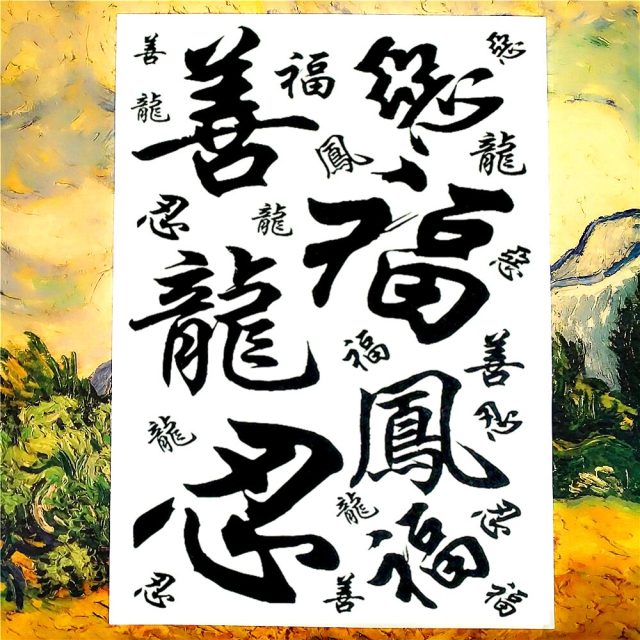 善
善
福
龍
龍
鳳
忍
龍
福
龍
福
善
忍
龍
鳳
忍
龍
忍
福
忍
善
福